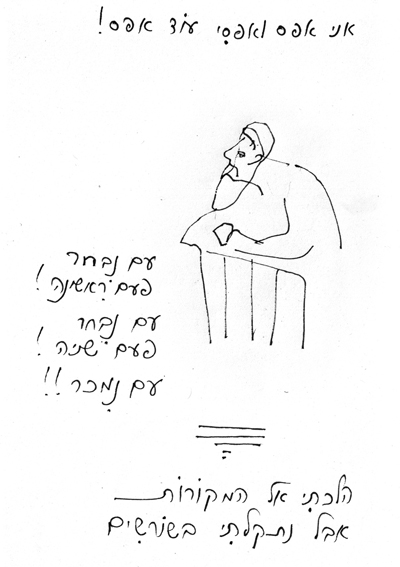 אני אפס ואפסִי עוֹד אפס!
עם נִבחר
פעם רִאשׁינה!
עם נִבְחר
פעם שׁניה!
עם נִמכר!!
הלכתִי אל המקוֹרוֹת
אבל נתקלתִי בשׁוֹרשִׁים